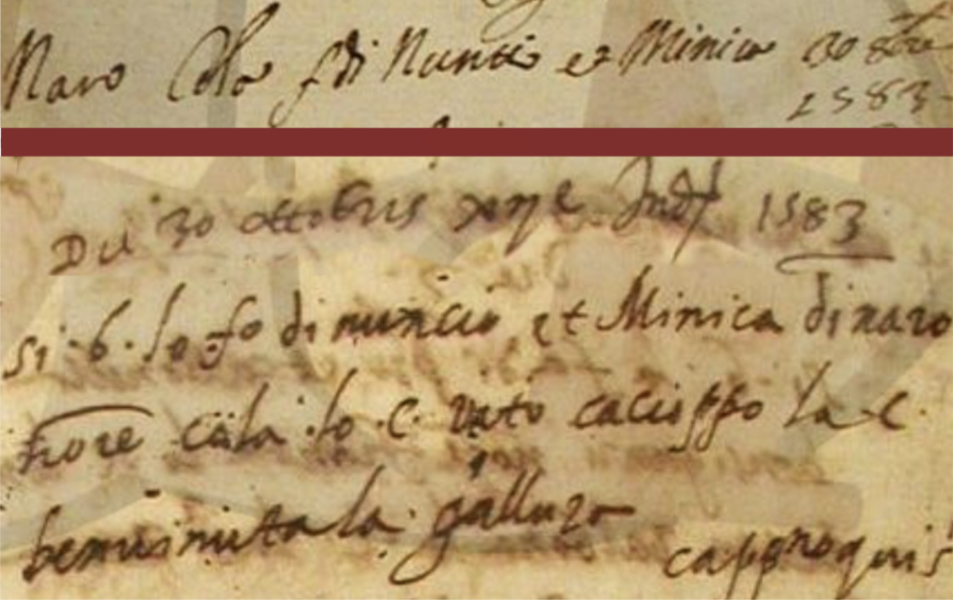 Naro Cola f di Nuntio et Minica 30 8bre
1583
Die 30 ottobris xije Ind. 1583
Si b. lo fo di nuncio et Minica di naro
nore cola lo c. vito cacioppo la c.
benvinuta la galluzo
capp